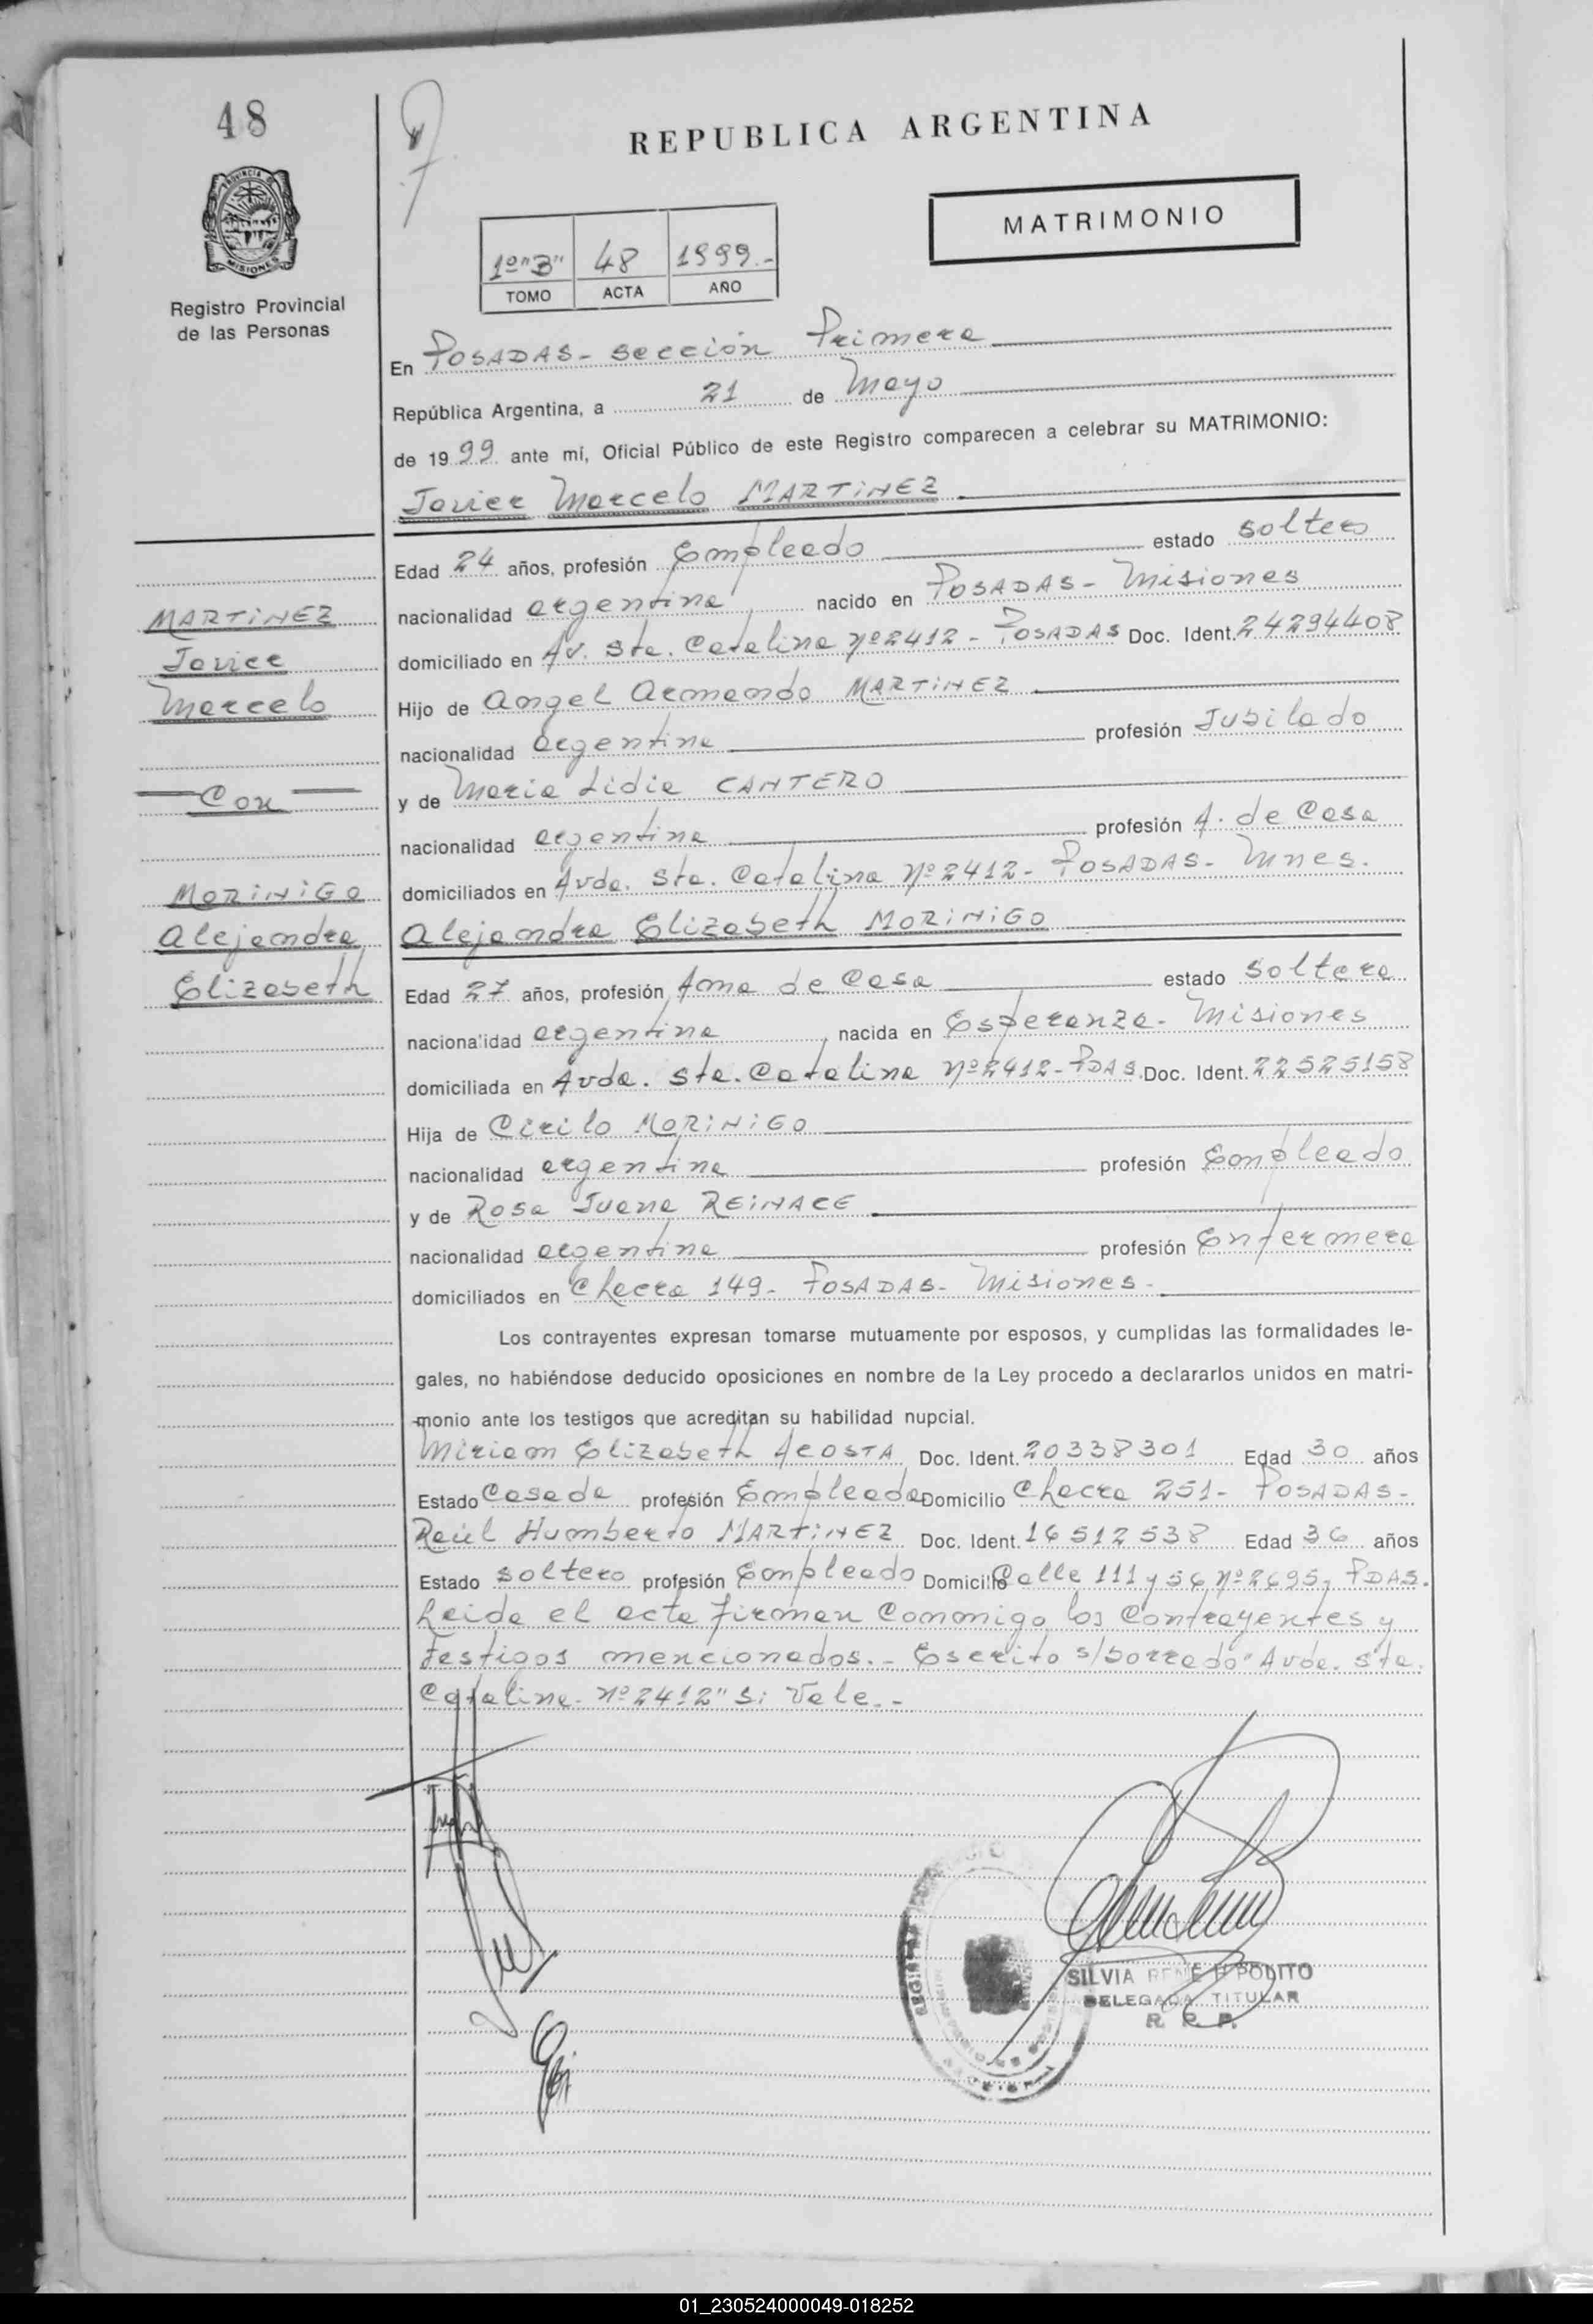 48
REPUBLICA ARGENTINA
MATRIMONIO
PROVINCIA DE
MISIONES
Registro Provincial
de las Personas
1º "B" 48 1999.-
TOMO ACTA AÑO
En POSADAS - Sección Primera
República Argentina, a 21 de Mayo
de 1999 ante mí, Oficial Público de este Registro comparecen a celebrar su MATRIMONIO:
Javier Marcelo MARTINEZ
Edad 24 años, profesión Empleado estado soltero
nacionalidad argentina nacido en POSADAS - Misiones
domiciliado en Av. Sta. Catalina Nº 2412 - POSADAS Doc. Ident. 24294408
Hijo de Angel Armando MARTINEZ
nacionalidad argentina profesión Jubilado
y de Maria Lidia CANTERO
nacionalidad argentina profesión A. de Casa
domiciliados en Avda. Sta. Catalina Nº 2412 - POSADAS - Mnes.
Alejandra Elizabeth MORINIGO
Edad 27 años, profesión Ama de Casa estado soltera
nacionalidad argentina, nacida en Esperanza - Misiones
domiciliada en Avda. Sta. Catalina Nº 2412 - PDAS. Doc. Ident. 22525158
Hija de Cirilo MORINIGO
nacionalidad argentina profesión Empleado
y de Rosa Juana REINACE
nacionalidad argentina profesión Enfermera
domiciliados en Chacra 149 - POSADAS - Misiones -
Los contrayentes expresan tomarse mutuamente por esposos, y cumplidas las formalidades le-
gales, no habiéndose deducido oposiciones en nombre de la Ley procedo a declararlos unidos en matri-
monio ante los testigos que acreditan su habilidad nupcial.
Miriam Elizabeth ACOSTA Doc. Ident. 20338301 Edad 30 años
Estado Casada profesión Empleada Domicilio Chacra 251 - POSADAS -
Raúl Humberto MARTINEZ Doc. Ident. 16512538 Edad 36 años
Estado soltero profesión Empleado Domicilio Calle 111 y 56 Nº 2695, PDAS.
Leida el acta firman Conmigo los Contrayentes y
testigos mencionados. - Escrito s/borrado "Avda. Sta.
Catalina - Nº 2412" Si Vale. -
MARTINEZ
Javier
Marcelo
Con
MORINIGO
Alejandra
Elizabeth
SILVIA RENE HIPOLITO
DELEGADA TITULAR
R. P. P.
01_230524000049-018252